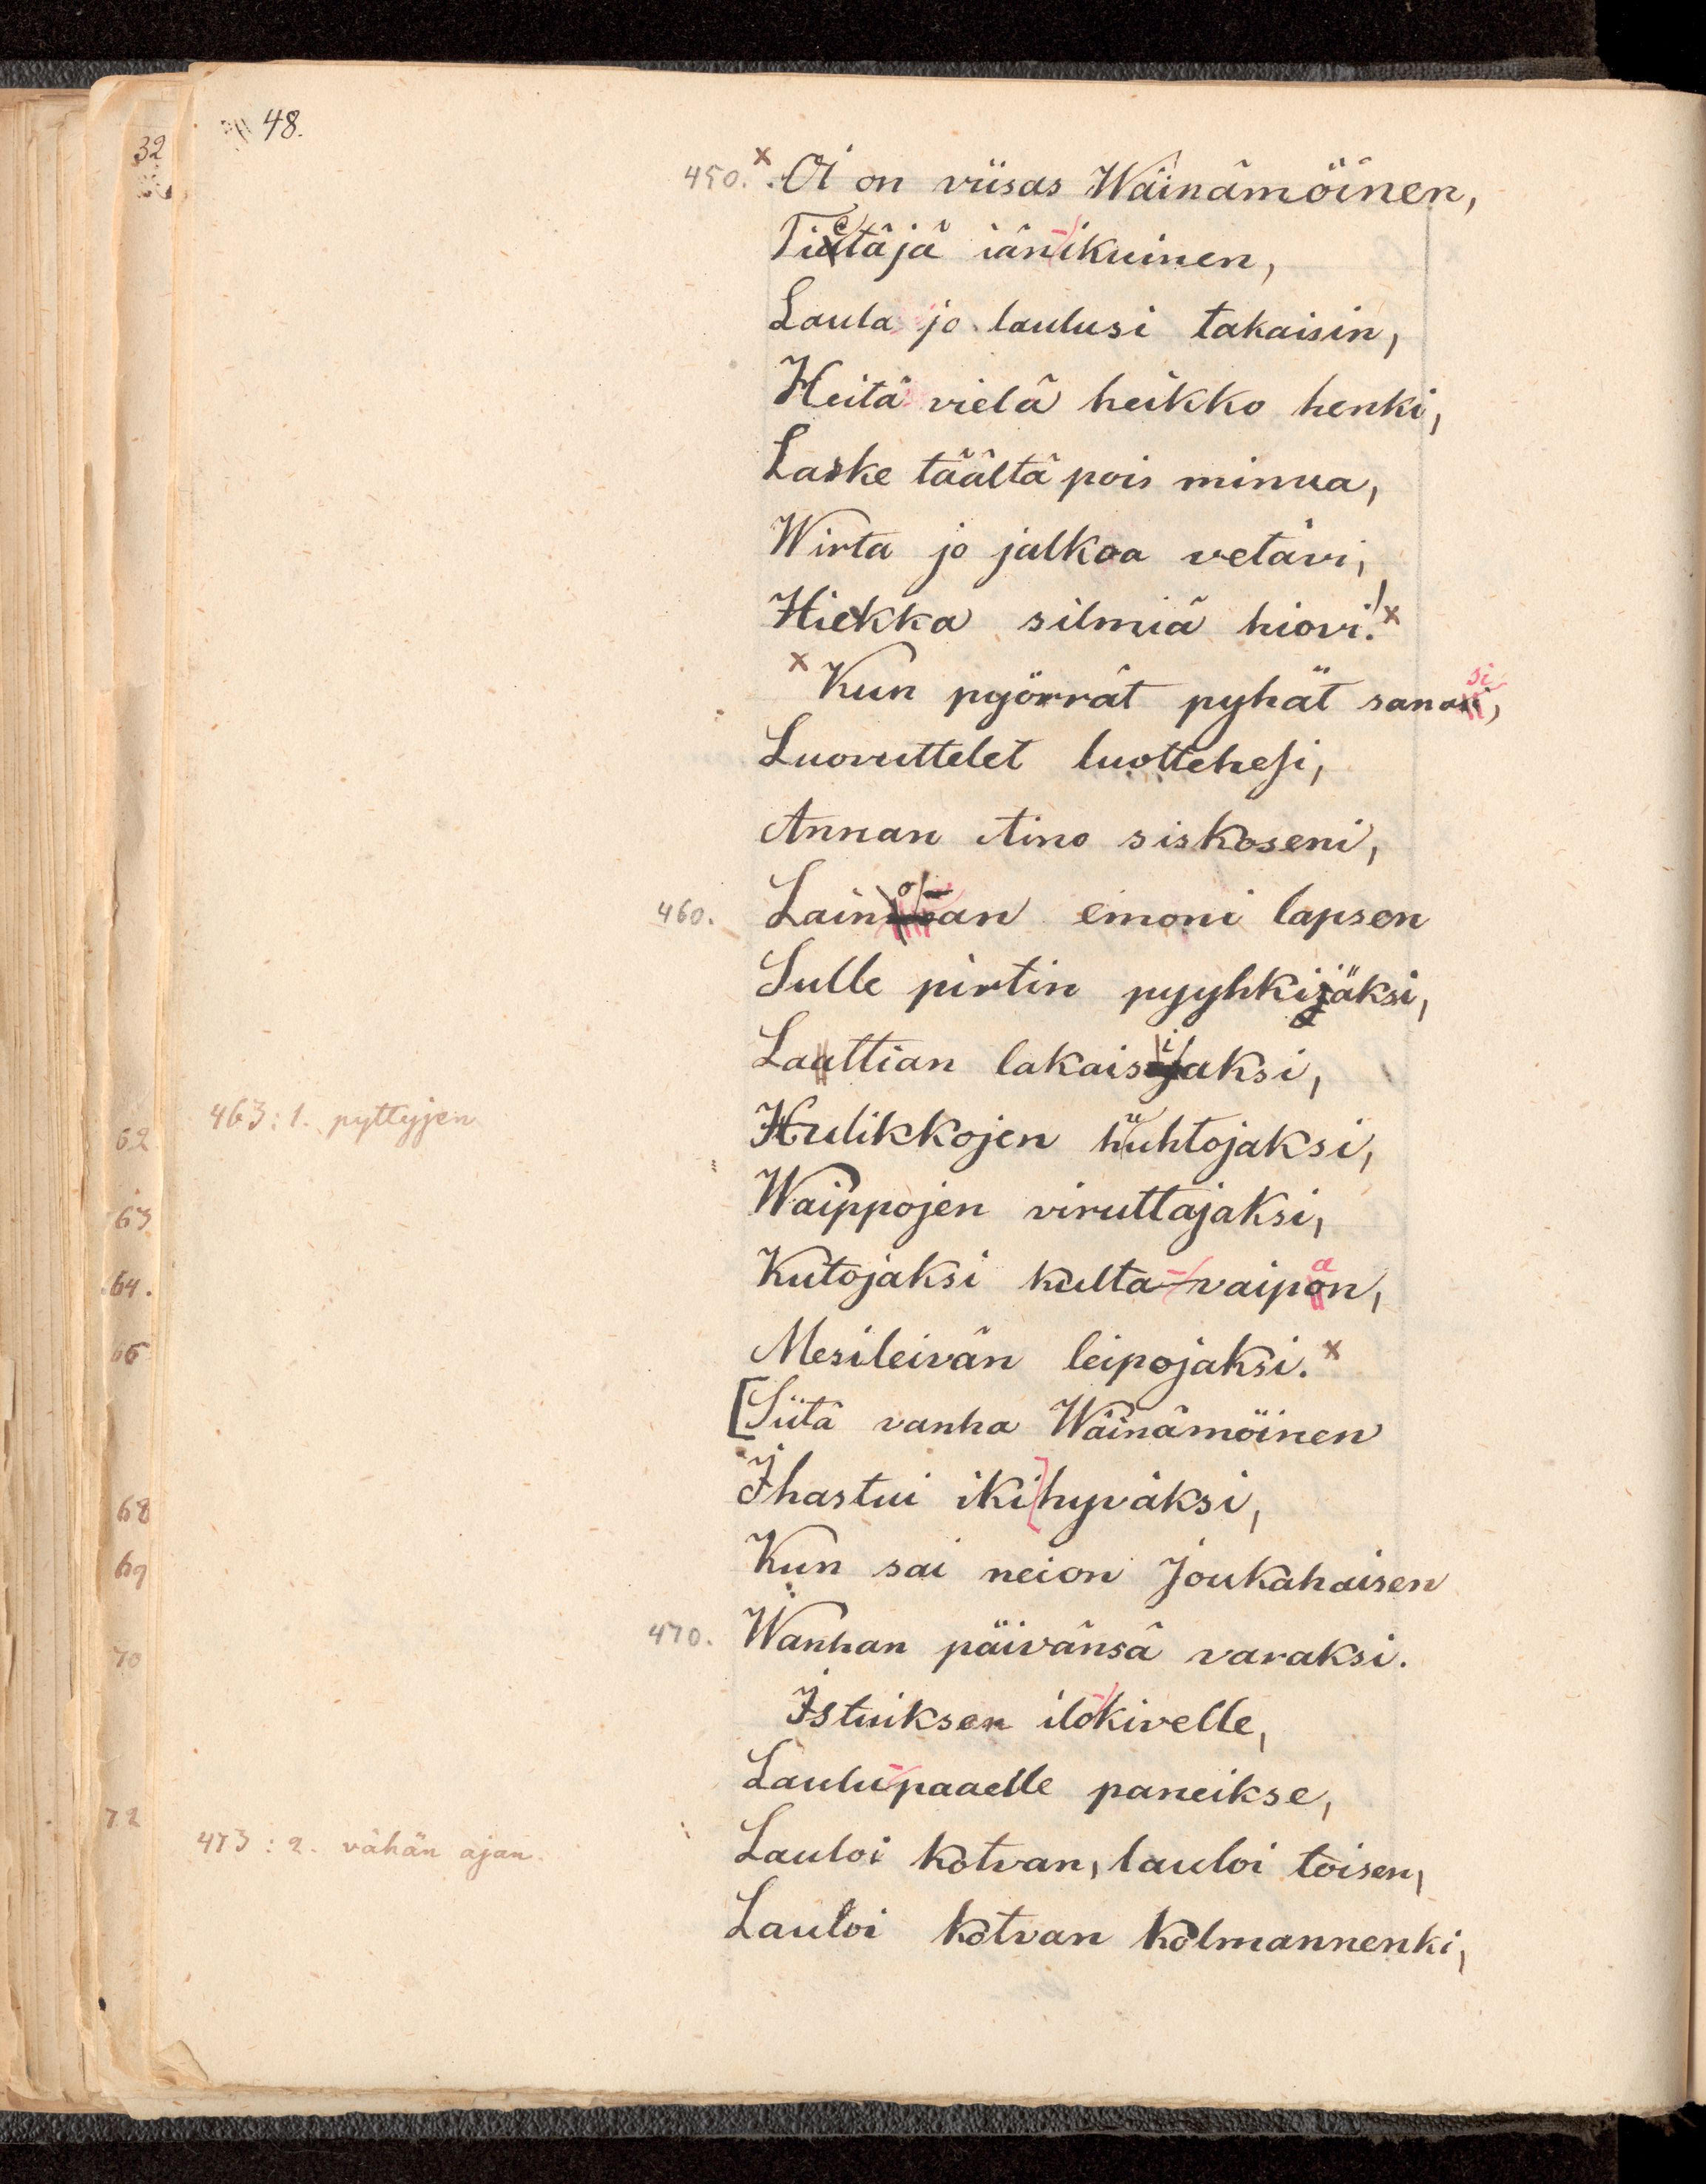 48.
32
450. x Oi on viisas Wäinämöinen,
Tietäjä iän-ikuinen,
Laula jo laulusi takaisin,
Heitä vielä heikko henki,
Laske täältä pois minua,
Wirta jo jalkoa vetävi,
Hiekka silmiä hiovi! x
x Kun pyörrät pyhät sanasi,
Luovuttelet luottehesi,
Annan Aino siskoseni,
460. Lainoan emoni lapsen
Sulle pirtin pyyhkijäksi,
Laattian lakaisijaksi,
463: 1. pyttyjen
Hulikkojen huuhtojaksi,
62
Waippojen viruttajaksi,
63
Kutojaksi kulta-vaipan,
64.
Mesileivän leipojaksi. x
65
[Siitä vanha Wäinämöinen
Ihastui iki hyväksi,
68
Kun sai neion Joukahaisen
69
470. Wanhan päivänsä varaksi.
70
Istuiksen ilo-kivelle,
Laulu-paaelle paneikse,
72
473: 2. vähän ajan.
Lauloi kotvan, lauloi toisen,
Lauloi kotvan kolmannenki,